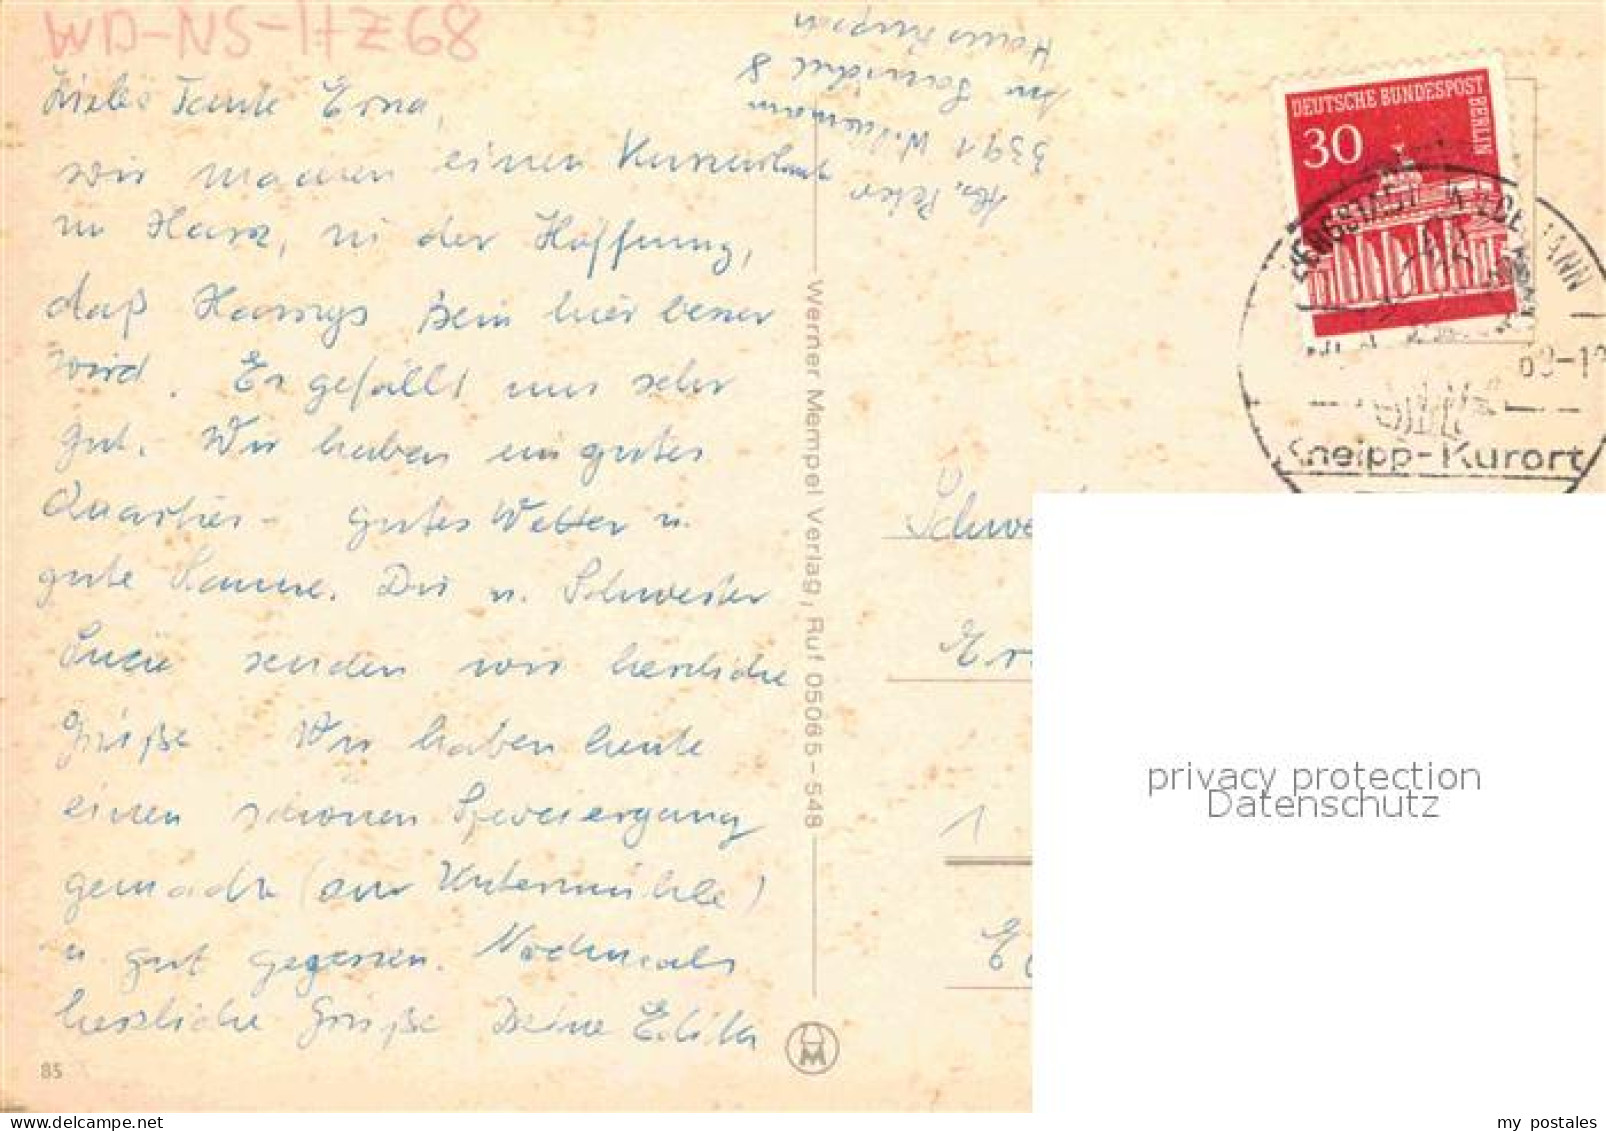 WD-NS-HZ68
Liebe Tante Erna,
wir machen einen Kurzurlaub
im Harz, in der Hoffnung,
daß Bein hier besser
wird. Es gefällt uns sehr
gut. Wir haben ein gutes
Quartier - gutes Wetter u.
gute Laune. Dir u. Schwester
Lucie senden wir herzliche
Grüße. Wir haben heute
einen schönen Spaziergang
gemacht (zur Untermühle)
u gut gegessen. Nochmals
herzliche Grüße Deine
85
Abs. Peter
3391 Wildemann
8
Haus
Werner Mempel Verlag, Ruf 05065-548
M
DEUTSCHE BUNDESPOST
BERLIN
30
BERGSTADT WILDEMANN
Kneipp-Kurort
Schwe
Er
1
privacy protection
Datenschutz
my postales